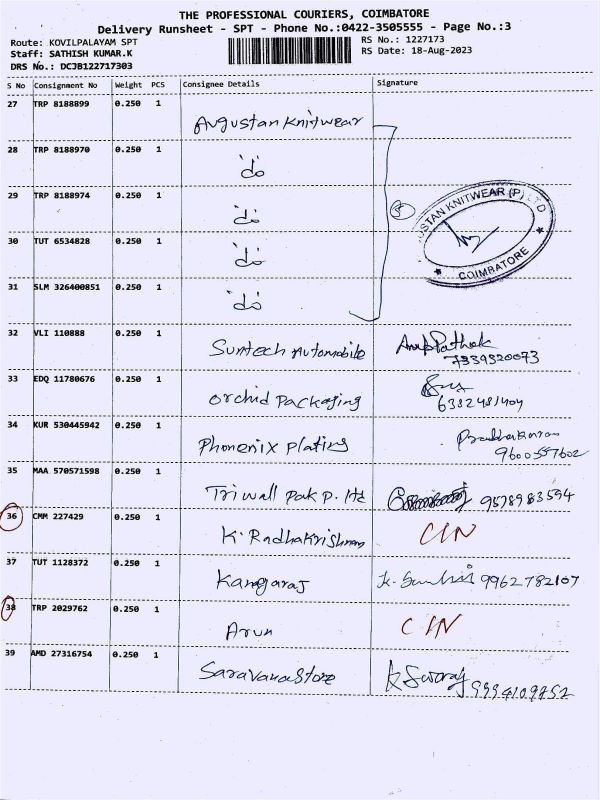 THE PROFESSIONAL COURIERS, COIMBATORE
Delivery Runsheet - SPT - Phone No.:0422-3505555 - Page No.:3
Route: KOVILPALAYAM SPT RS No.: 1227173
Staff: SATHISH KUMAR.K RS Date: 18-Aug-2023
DRS No.: DCJB122717303
S No Consignment No Weight PCS Consignee Details Signature
27 TRP 8188899 0.250 1 Augustan Knitwear
28 TRP 8188970 0.250 1 "do"
29 TRP 8188974 0.250 1 "do"
5
USTAN KNITWEAR (P) LTD
COIMBATORE
30 TUT 6534828 0.250 1 "do"
31 SLM 326400851 0.250 1 "do"
32 VLI 110888 0.250 1 Suntech Automobile
7339320073
33 EDQ 11780676 0.250 1 Orchid Packaging
6382481404
34 KUR 530445942 0.250 1 Phonenix Plating Prabhakaran
9600557602
35 MAA 570571598 0.250 1 Tri wall Pak P. ltd 9578983594
36 CMM 227429 0.250 1 K. Radhakrishnan CIN
37 TUT 1128372 0.250 1 Kangaraj 9962782107
38 TRP 2029762 0.250 1 Arun CIN
39 AMD 27316754 0.250 1 Saravana Store
9994109852